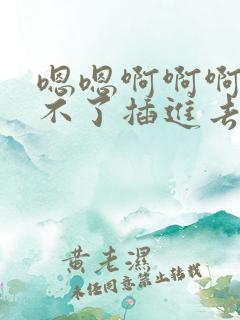 嗯嗯啊啊啊
不了插进去
黄老濕
未经同意禁止转载